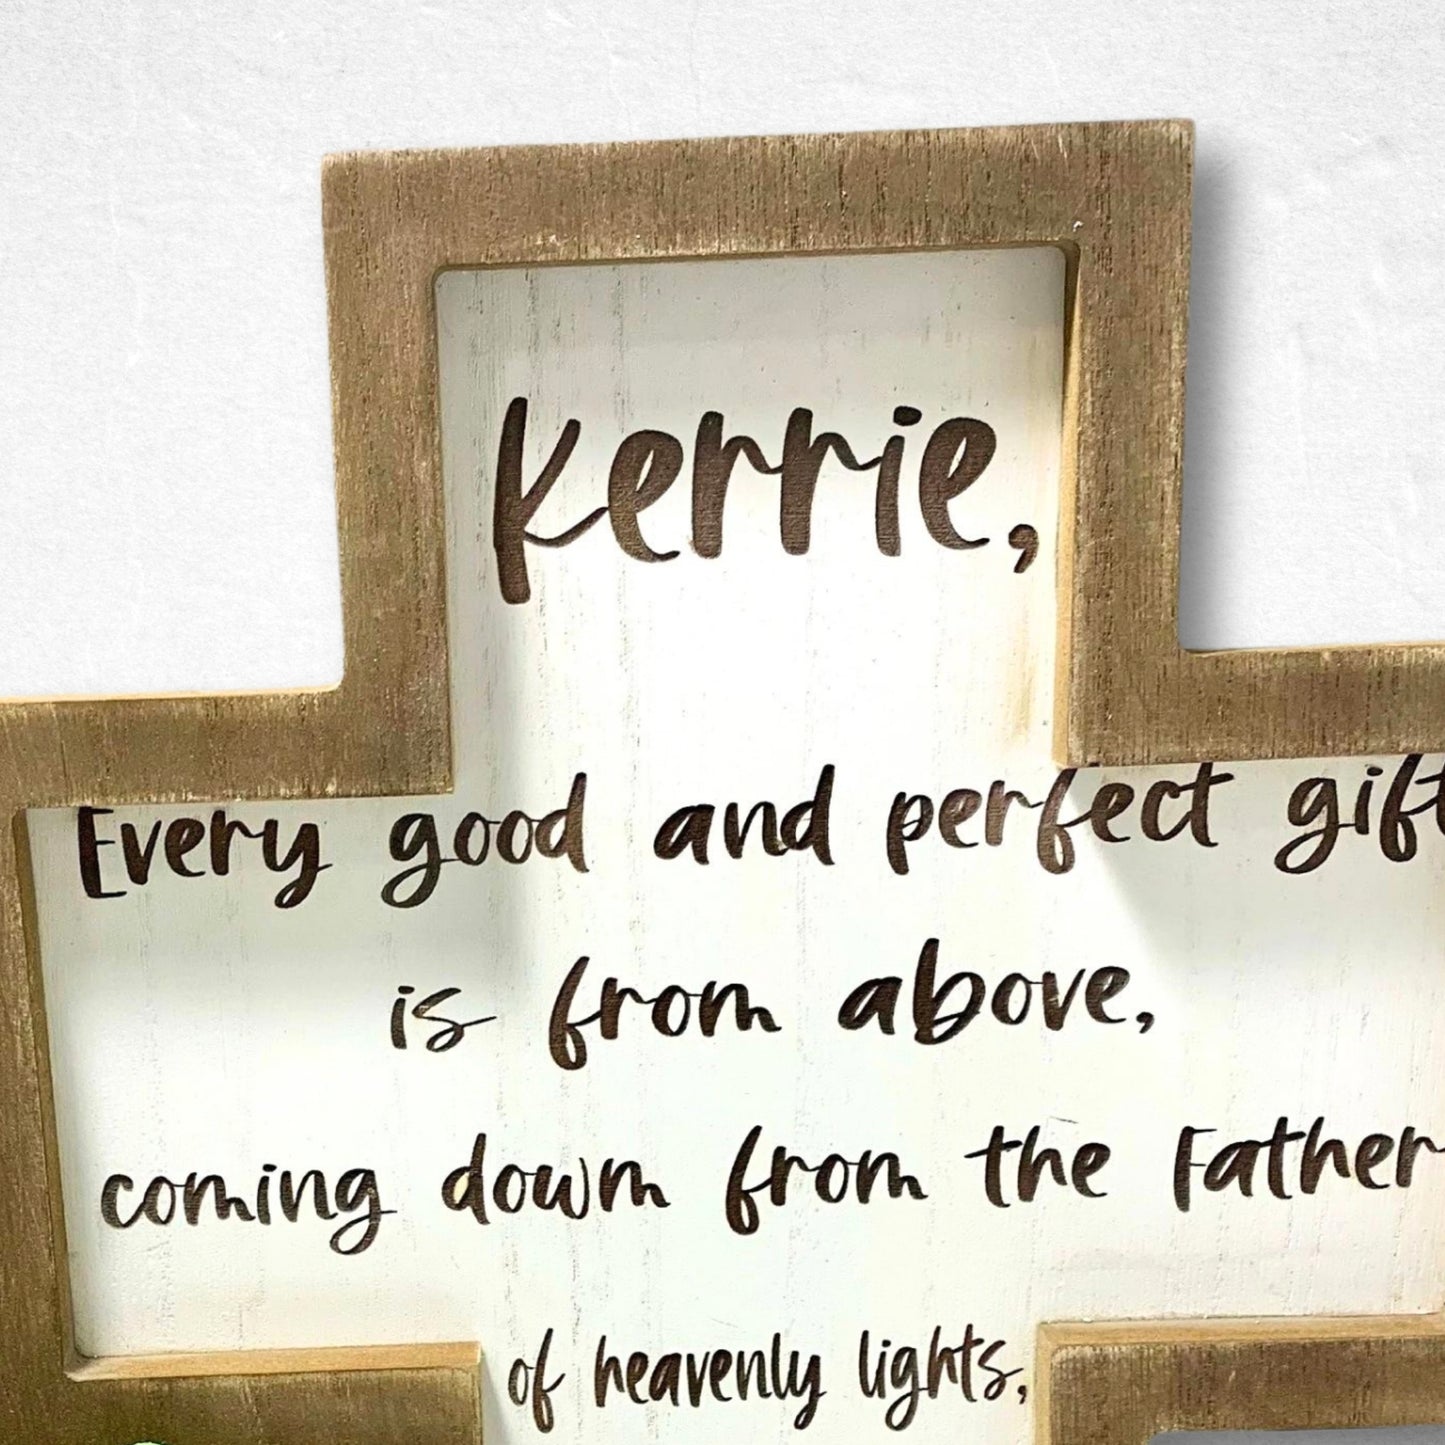 Kerrie,
Every good and perfect gift
is from above,
coming down from the Father
of heavenly lights,